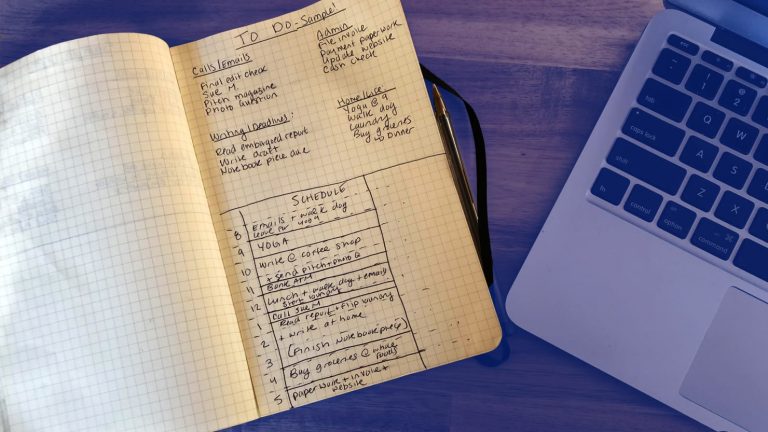 TO DO - Sample!
Calls/Emails
Final edit check
Sue M.
Pitch magazine
Photo question
Admin
File invoice
Payment paperwork
Update website
Cash check
Writing/Deadlines:
Read embargoed report
Write draft
Notebook piece due
Home/Life:
Yoga @ 9
Walk dog
Laundry
Buy groceries
Dinner
SCHEDULE
8 Emails + walk dog
leave for yoga
9 YOGA
10 Write @ coffee shop
+ Send pitch + photo Q
11 Bank ATM
12 Lunch + walk dog + email
Start laundry
Call Sue M
1 Read report + flip laundry
2 + write at home
3 (Finish Notebook piece)
4 Buy groceries @ whole
foods
5 paperwork + invoice +
website
tab
caps lock
shift
fn
control
option
command
!
1
@
2
Q
W
A
S
Z
X